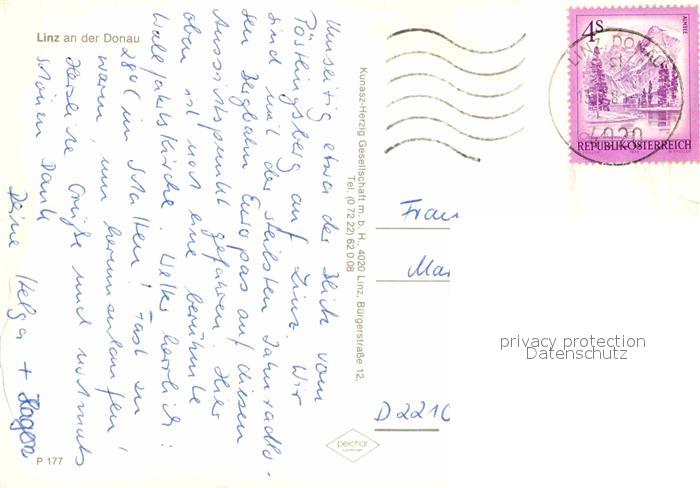 Linz an der Donau
Umseitig etwa der Blick vom
Pöstlingsberg auf Linz. Wir
sind mit der steilsten Zahnradlo-
der Bergbahn Europas auf diesen
Aussichtspunkt gefahren. Hier
oben ist noch eine berühmte
Wallfahrtskirche. Wetter herrlich:
28°C im Schatten! Fast zu
warm, um herumzulaufen,
Herzliche Grüße und nochmals
schönen Dank
Deine Helga +
P 177
Kunasz-Herzig Gesellschaft m. b. H., 4020 Linz, Bürgerstraße 12,
Tel. (0 72 22) 62 0 08
peichar
4S
ALMSEE
REPUBLIK ÖSTERREICH
LINZ, DONAU
4020
Frau
Mar
D 2210
privacy protection
Datenschutz